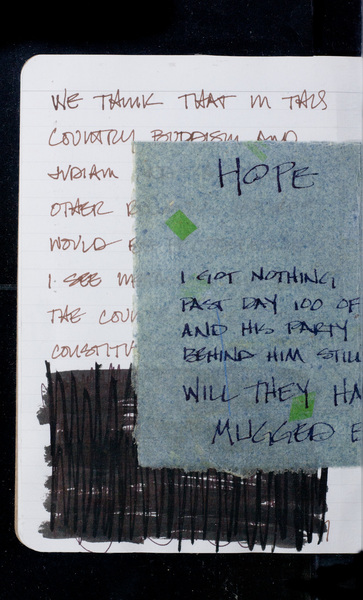 WE THINK THAT IN THIS
COUNTRY BUDDISM AND
JUDIAM
OTHER
WOULD
I SEE
THE COU
CONSTITU
HOPE
I GOT NOTHING
PAST DAY 100 OF
AND HIS PARTY
BEHIND HIM STILL
WILL THEY HA
MUGGED E